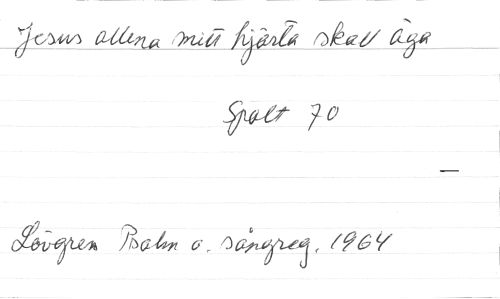 Jesus allena mitt hjärta skall äga
Spalt 70
—
Lövgren Psalm o. sångreg. 1964